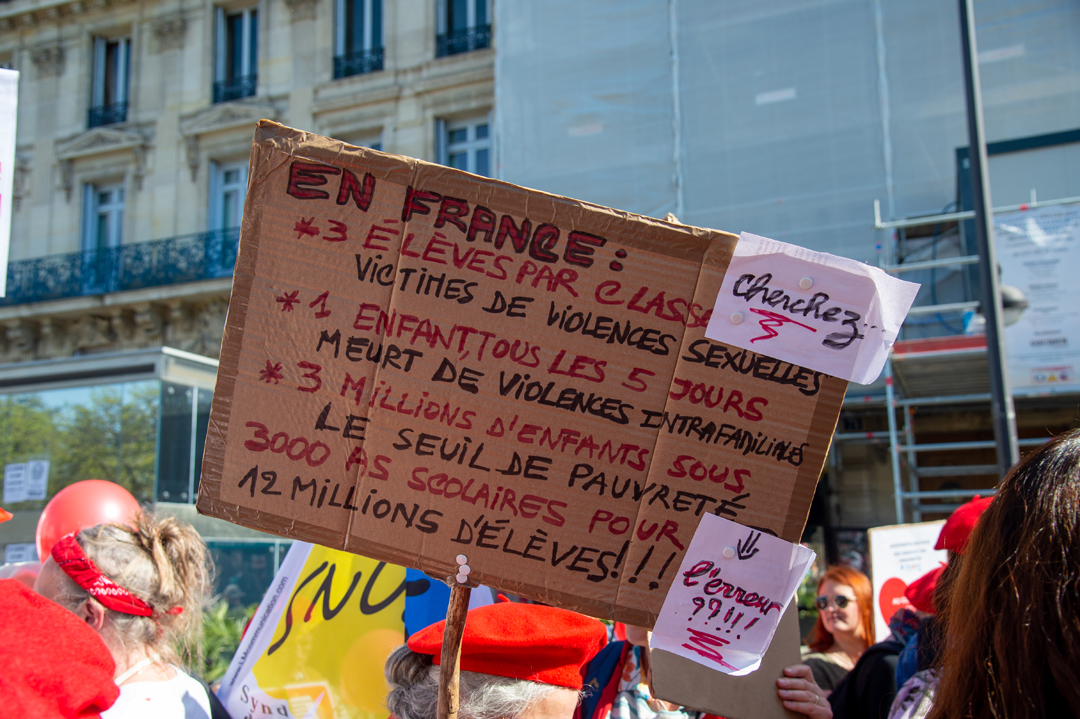 EN FRANCE :
* 3 ÉLÈVES PAR CLASSE
VICTIMES DE VIOLENCES SEXUELLES
* 1 ENFANT, TOUS LES 5 JOURS
MEURT DE VIOLENCES INTRAFAMILIALES
* 3 MILLIONS D'ENFANTS SOUS
LE SEUIL DE PAUVRETÉ
3000 AS SCOLAIRES POUR
12 MILLIONS D'ÉLÈVES!!!
Cherchez...
l'erreur
??!!!
SNU
Synd